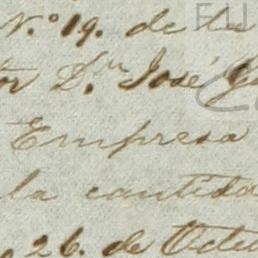 N.º 19. de la
D.n José
Empresa
la cantida
26. de Octu